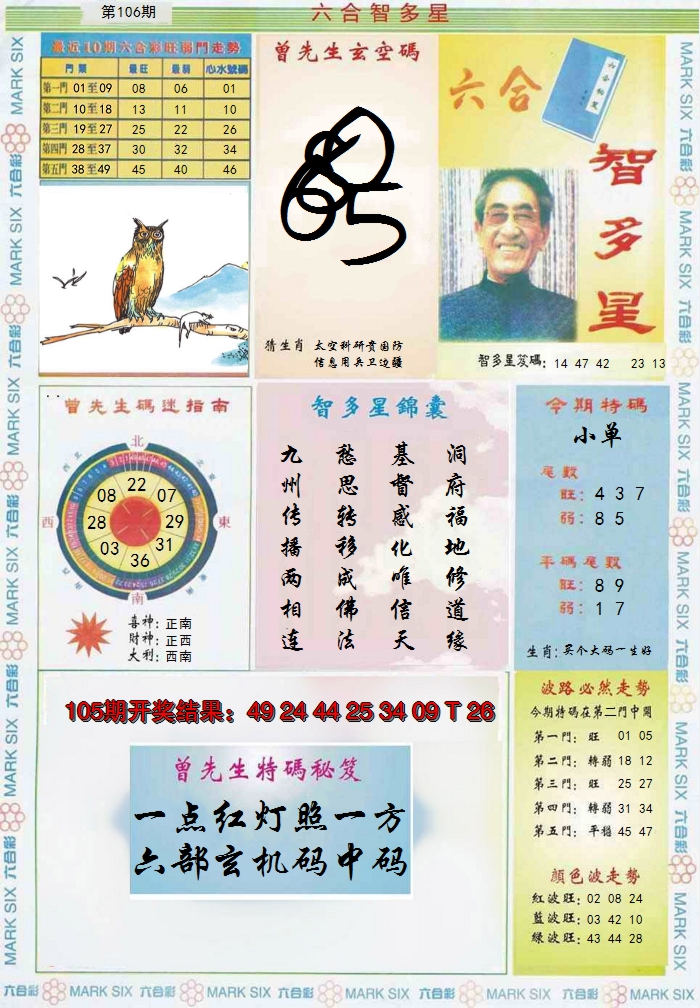 第106期
六合智多星
最近10期六合彩旺弱門走勢
門類 最旺 最弱 心水號碼
第一門 01至09 08 06 01
第二門 10至18 13 11 10
第三門 19至27 25 22 26
第四門 28至37 30 32 34
第五門 38至49 45 40 46
曾先生玄空碼
猜生肖 太空科研贵国防
信息用兵卫边疆
六合
智多星
智多星笈碼: 14 47 42 23 13
曾先生碼迷指南
北
西
東
南
22
08 07
28 29
03 31
36
喜神: 正南
財神: 正西
大利: 西南
智多星錦囊
洞府福地修道缘
基督感化唯信天
愁思转移成佛法
九州传播两相连
今期特碼
小单
尾數
旺: 4 3 7
弱: 8 5
平碼尾數
旺: 8 9
弱: 1 7
生肖: 买个大码一生好
105期开奖结果：49 24 44 25 34 09 T 26
曾先生特碼秘笈
一点红灯照一方
六部玄机码中码
波路必然走勢
今期特碼在第二門中開
第一門: 旺 01 05
第二門: 轉弱 18 12
第三門: 旺 25 27
第四門: 轉弱 31 34
第五門: 平穩 45 47
顏色波走勢
紅波旺: 02 08 24
藍波旺: 03 42 10
綠波旺: 43 44 28
MARK SIX 六合彩